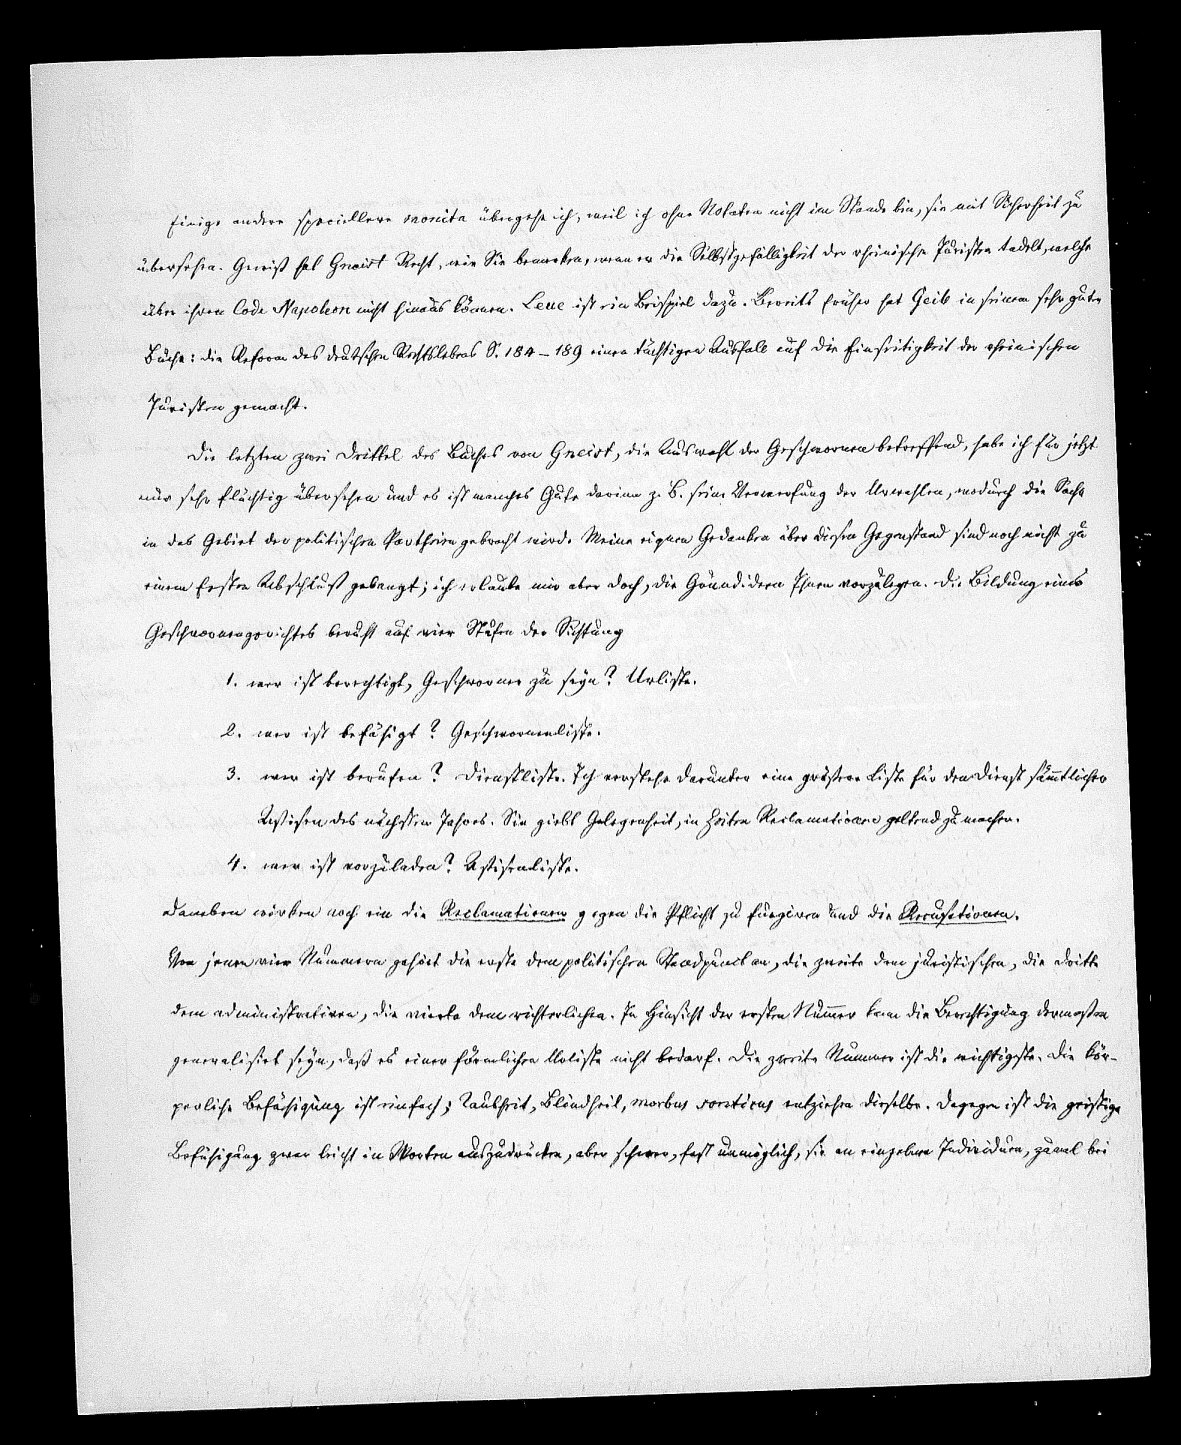 Einige andere speciellere monita übergehe ich, weil ich ohne Notaten nicht im Stande bin, sie mit Sicherheit zu
übersehen. Gewiß hat Gneist Recht, wie Sie bemerken, wenn er die Selbstgefälligkeit der rheinische Juristen tadelt, welche
über ihren Code Napoleon nicht hinaus können. Leue ist ein Beispiel dazu. Bereits früher hat Geib in seinem sehr guten
Buche: die Reform des deutschen Rechtslebens S. 184–189 einen tüchtigen Ausfall auf die Einseitigkeit der rheinischen
Juristen gemacht.
Die letzten zwei Drittel des Buches von Gneist, die Auswahl der Geschwornen betreffend, habe ich für jetzt
nur sehr flüchtig übersehen und es ist manches Gute darinn z. B. seine Verwerfung der Urwahlen, wodurch die Sache
in das Gebiet der politischen Partheien gebracht wird. Meine eignen Gedanken über diesen Gegenstand sind noch nicht zu
einem festen Abschluß gelangt; ich erlaube mir aber doch, die Grundideen Ihnen vorzulegen. Die Bildung eines
Geschwornengerichtes beruht auf vier Stufen der Sichtung
1. wer ist berechtigt, Geschworner zu seyn? Urliste.
2. wer ist befähigt? Geschwornenliste.
3. wer ist berufen? Dienstliste. Ich verstehe darunter eine größere Liste für den Dienst sämtlicher
Assisen des nächsten Jahres. Sie giebt Gelegenheit, in Zeiten Reclamationen geltend zu machen.
4. wer ist vorzuladen? Assisenliste.
Daneben wirken noch ein die Reclamationen gegen die Pflicht zu fungiren und die Recusationen.
Von jenen vier Nummern gehört die erste dem politischen Standpunct an, die zweite dem juristischen, die dritte
dem administrativen, die vierte dem richterlichen. In Hinsicht der ersten Numer kann die Berechtigung dermaßen
generalisiert seyn, daß es einer förmlichen Urliste nicht bedarf. Die zweite Nummer ist die wichtigste. Die kör-
perliche Befähigung ist einfach; Taubheit, Blindheit, morbus sonticus entziehen dieselbe. Dagegen ist die geistige
Befähigung zwar leicht in Worten auszudrücken, aber schwer, fast unmöglich, sie an einzelnen Individuen, zumal bei